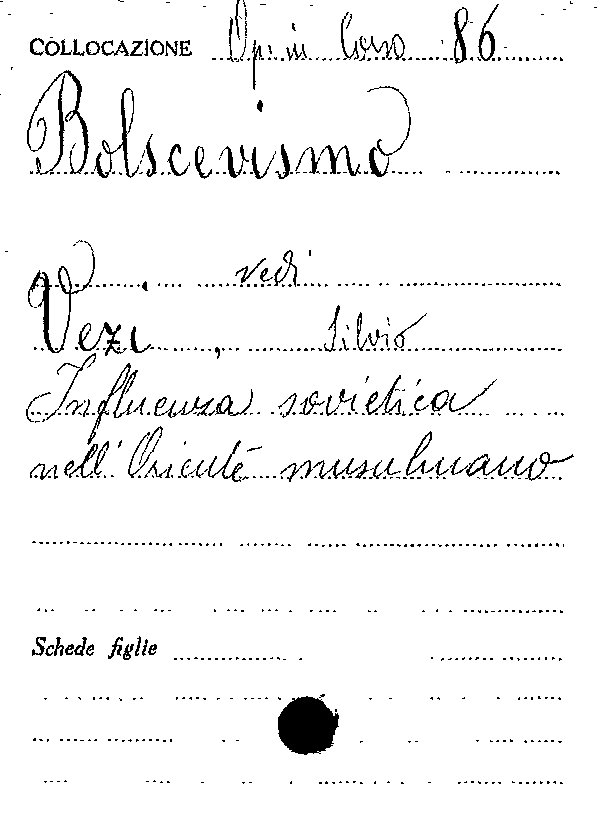 COLLOCAZIONE Op. in Corso 86
Bolscevismo
vedi
Vezi, Silvio
Influenza sovietica
nell'Oriente musulmano
Schede figlie